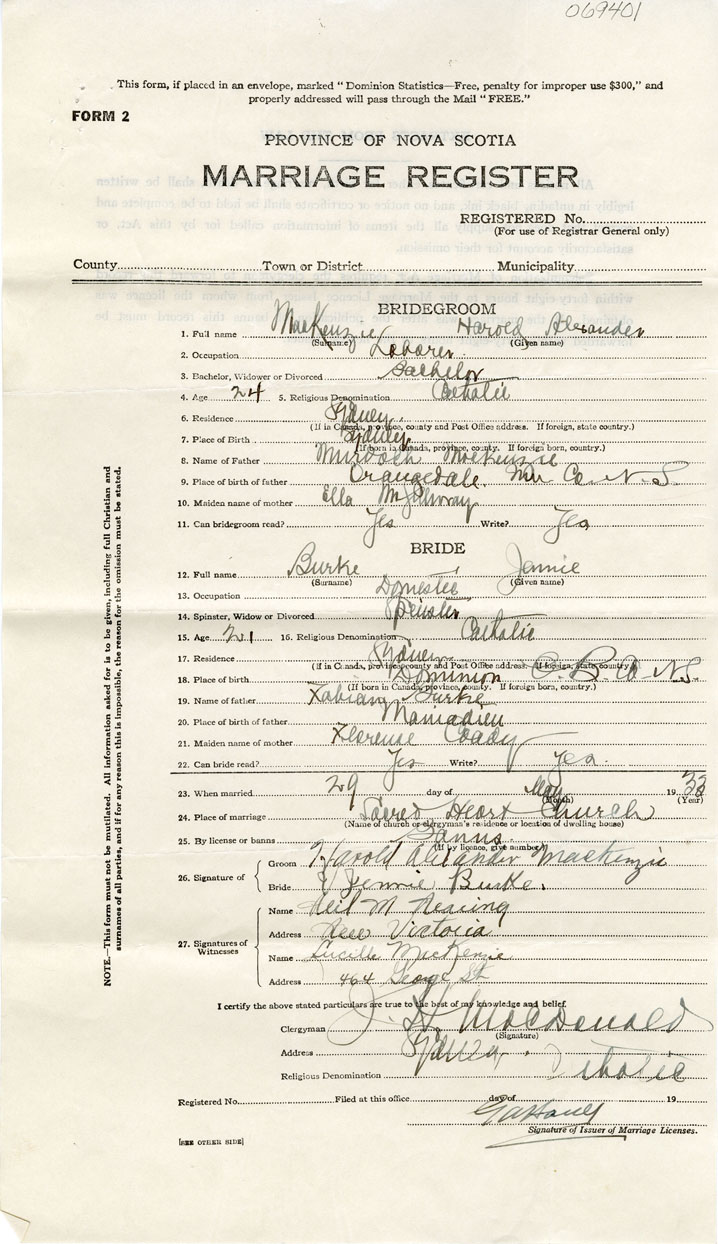 069401
This form, if placed in an envelope, marked "Dominion Statistics—Free, penalty for improper use $300," and
properly addressed will pass through the Mail "FREE."
FORM 2
PROVINCE OF NOVA SCOTIA
MARRIAGE REGISTER
REGISTERED No.
(For use of Registrar General only)
County Town or District Municipality
BRIDEGROOM
1. Full name MacKenzie Harold Alexander
(Surname) (Given name)
2. Occupation Laborer
3. Bachelor, Widower or Divorced Bachelor
4. Age 24 5. Religious Denomination Catholic
6. Residence Sydney
(If in Canada, province, county and Post Office address. If foreign, state country.)
7. Place of Birth Sydney
(If born in Canada, province, county. If foreign born, country.)
8. Name of Father Murdoch MacKenzie
9. Place of birth of father Orangedale, Inv Co. N.S.
10. Maiden name of mother Ella
11. Can bridegroom read? Yes Write? Yes
BRIDE
12. Full name Burke Jennie
(Surname) (Given name)
13. Occupation Domestic
14. Spinster, Widow or Divorced Spinster
15. Age 21 16. Religious Denomination Catholic
17. Residence Sydney
(If in Canada, province, county and Post Office address. If foreign, state country.)
18. Place of birth Dominion C. B. Co N.S.
(If born in Canada, province, county. If foreign born, country.)
19. Name of father Fabian Burke
20. Place of birth of father Mainadieu
21. Maiden name of mother Florence Coady
22. Can bride read? Yes Write? Yes.
23. When married 29 day of May 19
(Month) (Year)
24. Place of marriage Sacred Heart Church
(Name of church or clergyman's residence or location of dwelling house)
25. By license or banns Banns
(If by licence, give number)
26. Signature of
Groom Harold Alexander MacKenzie
Bride Jennie Burke.
27. Signatures of Witnesses
Name Neil M Nearing
Address New Victoria
Name Lucille MacKenzie
Address 464 George St
I certify the above stated particulars are true to the best of my knowledge and belief.
Clergyman J. H. MacDonald
(Signature)
Address Sydney
Religious Denomination Catholic
Registered No. Filed at this office day of 19
Signature of Issuer of Marriage Licenses.
[SEE OTHER SIDE]
NOTE.—This form must not be mutilated. All information asked for is to be given, including full Christian and
surnames of all parties, and if for any reason this is impossible, the reason for the omission must be stated.